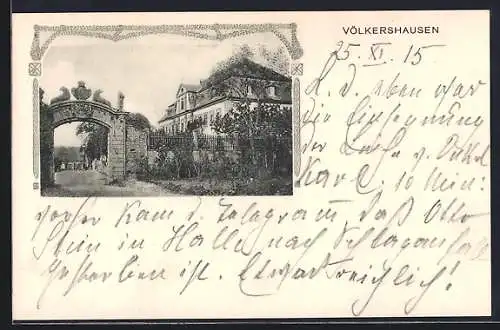 VÖLKERSHAUSEN
25. XI. 15
L. D. eben war
die Einsegnung
der Leiche v. Onkel
Karl. 10 Min:
vorher kam d. Telegram daß Otto
Stein in Halle nach Schlaganfall
gestorben ist. Etwas reichlich!